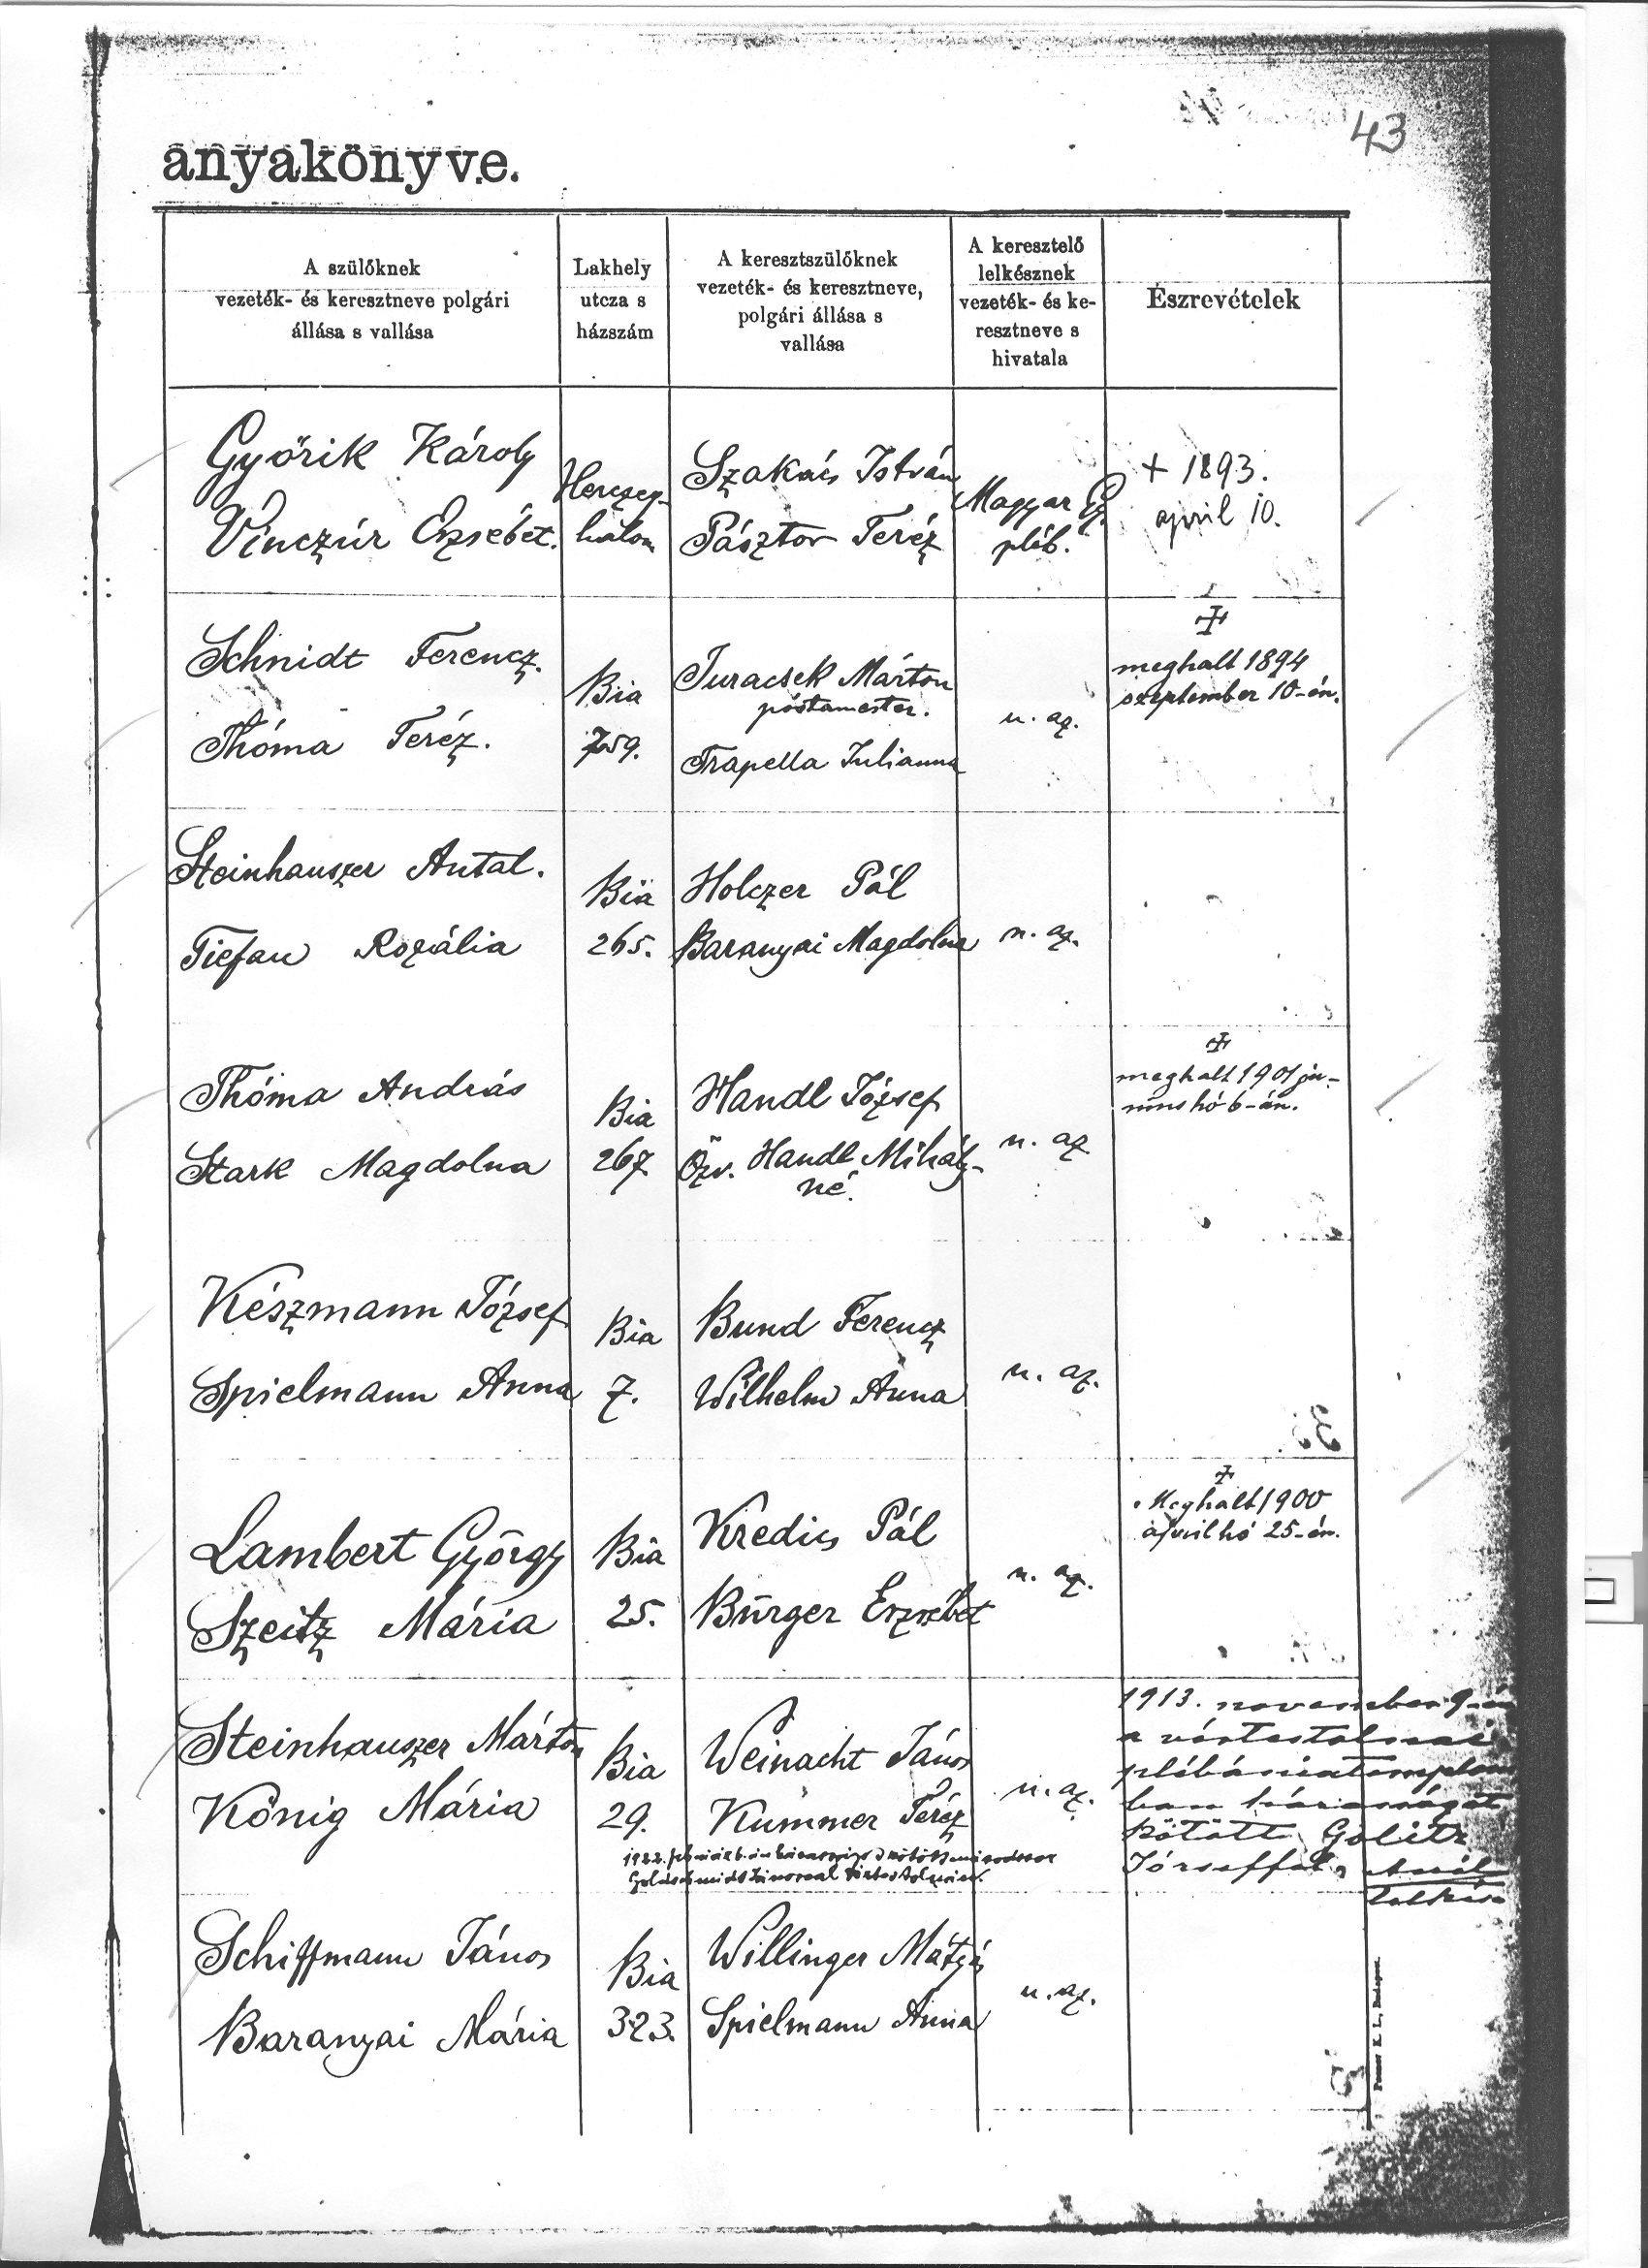 43
anyakönyve.
A szülőknek
vezeték- és keresztneve polgári
állása s vallása
Lakhely
utcza s
házszám
A keresztszülőknek
vezeték- és keresztneve,
polgári állása s
vallása
A keresztelő
lelkésznek
vezeték- és ke-
resztneve s
hivatala
Észrevételek
Győrik Károly
Vinczúr Erzsébet.
Herczeg-
halom
Szakács István
Pásztor Teréz
Magyar
pléb.
+ 1893.
april 10.
Schnidt Ferencz.
Thóma Teréz.
Bia
759.
Turacsek Márton
póstamester.
Trapella Julianna
u. az.
meghalt 1894
szeptember 10-én.
Steinhauszer Antal.
Tiefau Rozália
Bia
265.
Holczer Pál
Baranyai Magdolna
u. az.
Thóma András
Stark Magdolna
Bia
267
Handl József
Özv. Handl Mihály-
né.
u. az
meghalt 1901 ju-
nius hó 6-án.
Készmann József
Spielmann Anna
Bia
7.
Bund Ferencz
Wilhelm Anna
u. az.
Lambert György
Szeitz Mária
Bia
25.
Kredics Pál
Bürger Erzsébet
u. az.
Meghalt 1900
april hó 25-én.
Steinhauszer Márton
König Mária
Bia
29.
Weinacht János
Kummer Teréz
u. az.
1913. november 9-én
a
plébániatemplom
ban házasságot
kötött
Józseffel.
Schiffmann János
Baranyai Mária
Bia
323.
Willinger Mátyás
Spielmann Anna
u. az.
Posner K. L., Budapest.